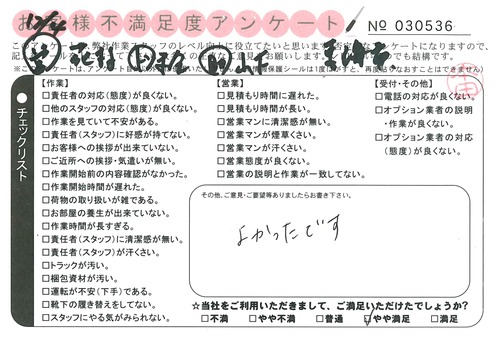 お客様不満足度アンケート
No 030536
【作業】
□責任者の対応(態度)が良くない。
□他のスタッフの対応(態度)が良くない。
□作業を見ていて不安がある。
□責任者(スタッフ)に好感が持てない。
□お客様への挨拶が出来ていない。
□ご近所への挨拶・気遣いが無い。
□作業開始前の内容確認がなかった。
□作業開始時間が遅れた。
□荷物の取り扱いが雑である。
□お部屋の養生が出来ていない。
□作業時間が長すぎる。
□責任者(スタッフ)に清潔感が無い。
□責任者(スタッフ)が汗くさい。
□トラックが汚い。
□梱包資材が汚い。
□運転が不安(下手)である。
□靴下の履き替えをしてない。
□スタッフにやる気がみられない。
【営業】
□見積もり時間に遅れた。
□見積もり時間が長い。
□営業マンに清潔感が無い。
□営業マンが煙草くさい。
□営業マンが汗くさい。
□営業態度が良くない。
□営業の説明と作業が一致してない。
【受付・その他】
□電話の対応が良くない。
□オプション業者の説明
・作業が良くない。
□オプション業者の対応
(態度)が良くない。
チェックリスト
その他、ご意見・ご要望等ありましたらお書き下さい。
よかったです
☆当社をご利用いただきまして、ご満足いただけたでしょうか?
□不満 □やや不満 □普通 □やや満足 □満足